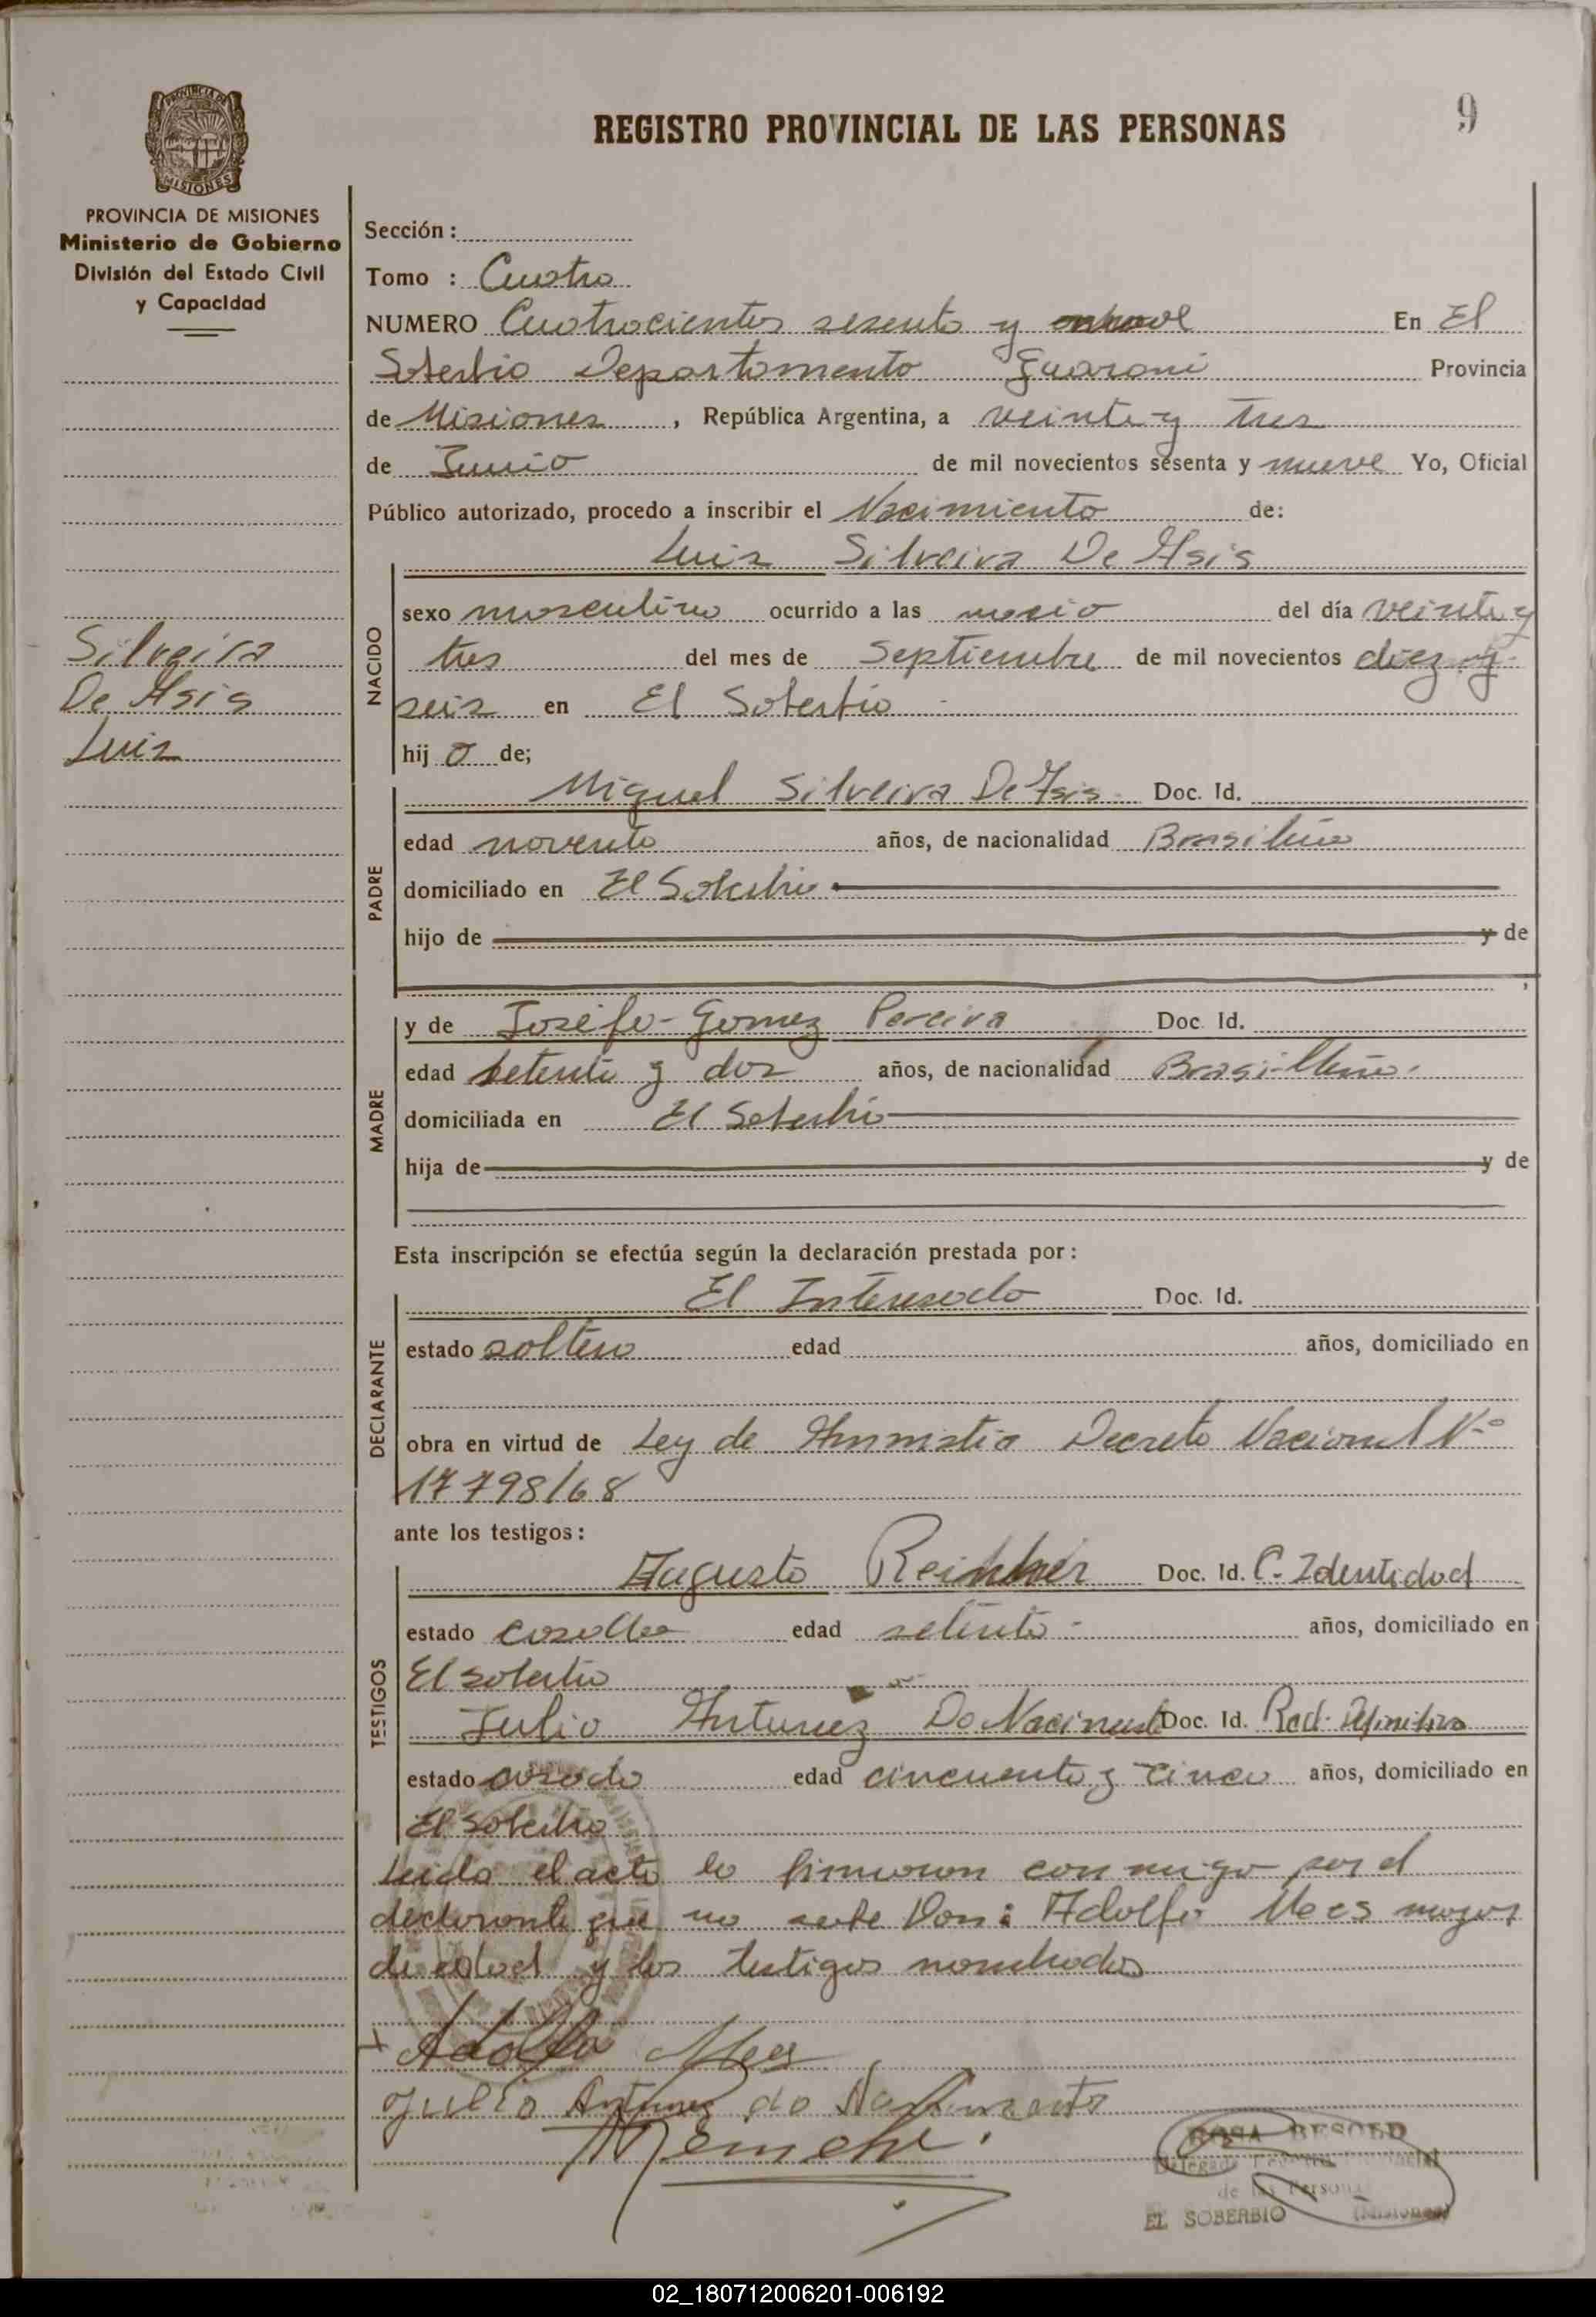 REGISTRO PROVINCIAL DE LAS PERSONAS
9
PROVINCIA DE MISIONES
MISIONES
PROVINCIA DE MISIONES
Ministerio de Gobierno
División del Estado Civil
y Capacidad
Silveira
De Asis
Luis
Sección :
Tomo : Cuatro
NUMERO Cuatrocientos sesenta y En El
Soberbio Departamento Guarani Provincia
de Misiones , República Argentina, a veinte y tres
de Junio de mil novecientos sesenta y nueve Yo, Oficial
Público autorizado, procedo a inscribir el Nacimiento de:
Luis Silveira De Asis
NACIDO
sexo masculino ocurrido a las del día veinte y
tres del mes de Septiembre de mil novecientos diez y
seis en El Soberbio
hij o de;
PADRE
Miguel Silveira De Asis Doc. Id.
edad noventa años, de nacionalidad Brasileño
domiciliado en El Soberbio
hijo de y de
MADRE
y de Josefa Gomez Pereira Doc. Id.
edad setenta y dos años, de nacionalidad Brasileña.
domiciliada en El Soberbio
hija de y de
Esta inscripción se efectúa según la declaración prestada por:
DECLARANTE
El Interesado Doc. Id.
estado soltero edad años, domiciliado en
obra en virtud de Ley de Amnistia Decreto Nacional Nº
17798/68
ante los testigos:
TESTIGOS
Augusto Doc. Id. C. Identidad
estado casado edad setenta - años, domiciliado en
El Soberbio
Julio Antunez Do Naciment Doc. Id. Rad. Definitiva
estado casado edad cincuenta y cinco años, domiciliado en
El Soberbio
Leida el acta la firmaron conmigo por el
declarante que no sabe Don: Adolfo Mees mayor
de edad y los testigos nombrados
Adolfo Mees
Julio Antunes do Nascimento
ROSA BESOLD
de las Personas
EL SOBERBIO (Misiones)
02_180712006201-006192